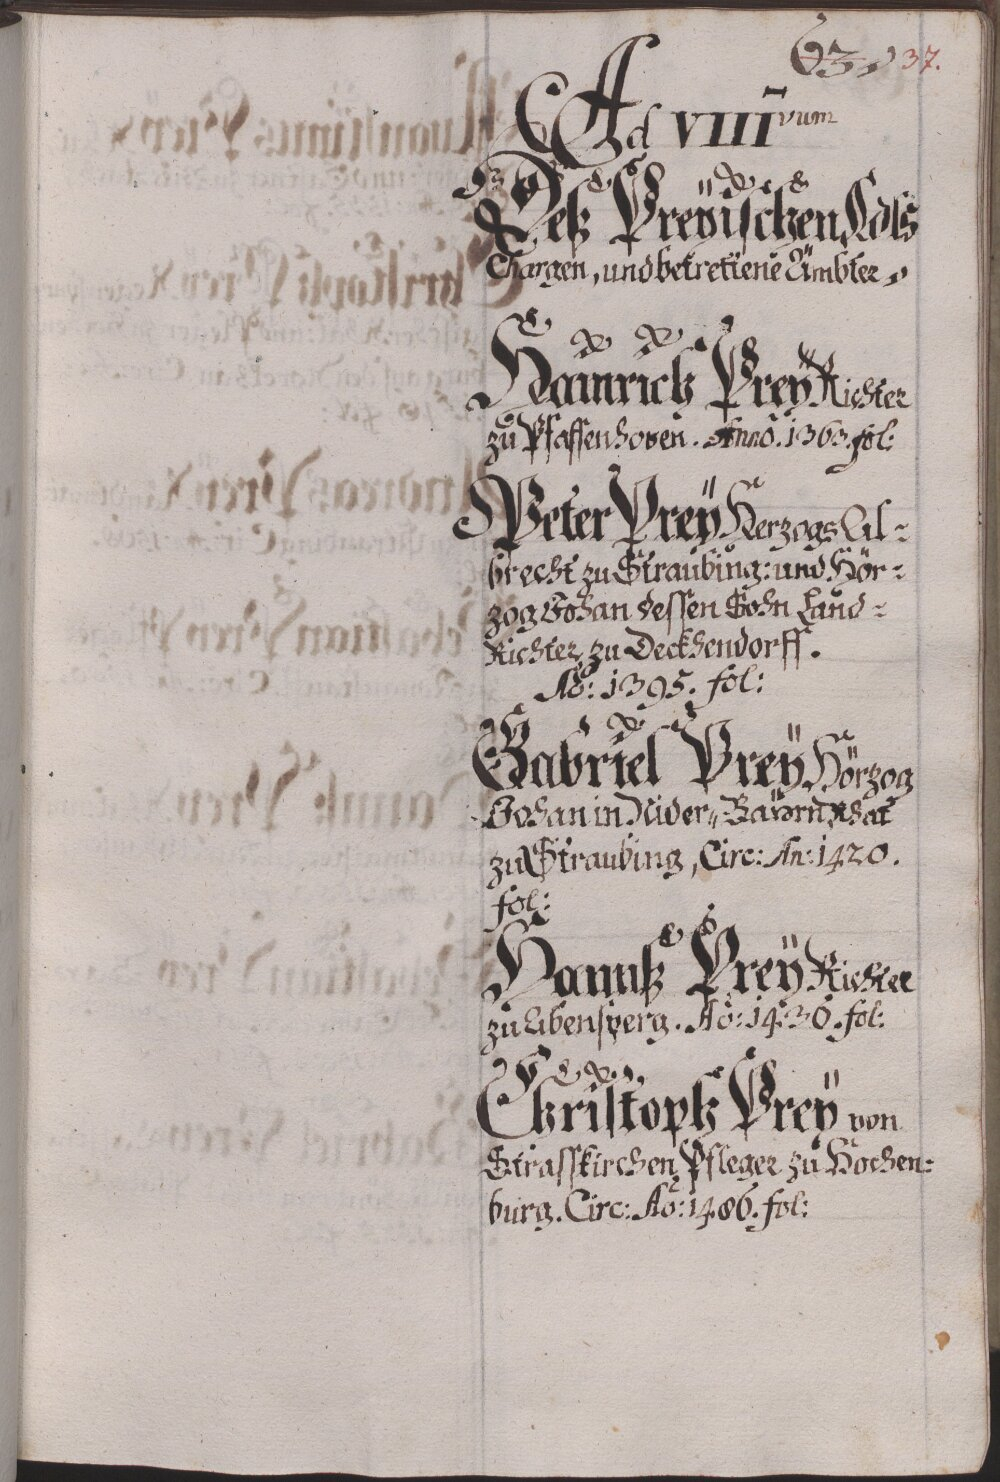 63, 37.
Ad VIII vum
Deß Preÿischen Adls
Chargen, und betrettene Ämbter,
Hainrich Preÿ Richter
zu Pfaffenhoven. Anno. 1363. fol:
Peter Preÿ Herzogs Al-
brecht zu Straubing: und Hör-
zog Johan dessen Sohn Land-
Richter zu Deckhendorff.
Aõ: 1395. fol:
Gabriel Preÿ Hörzog
Johan in Nider-Bayrn Rhat
zu Straubing, Circ: An: 1420.
fol:
Hannß Preÿ Richter
zu Abensperg. Aõ: 1436. fol:
Christoph Preÿ von
Strasskirchen Pfleger zu Hochen-
burg. Circ: Aõ: 1486. fol: